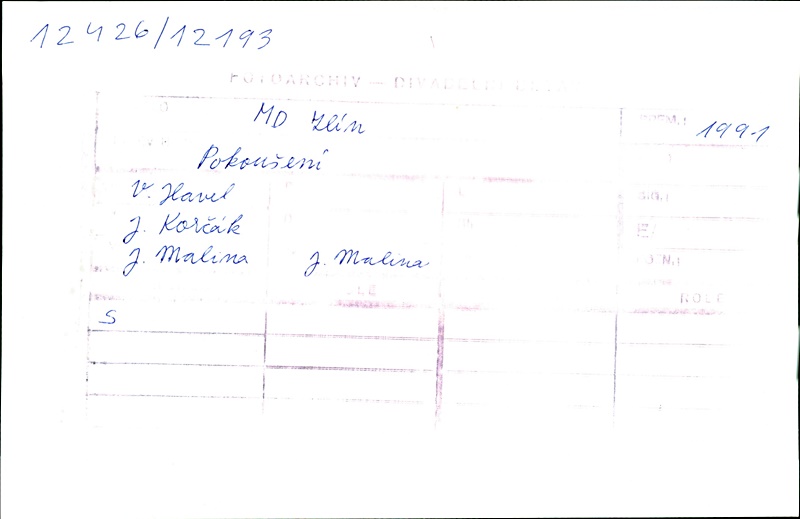 12426/12193
FOTOARCHIV —
MD Zlín
1991
Pokoušení
V. Havel
J. Korčák
J. Malina J. Malina
S